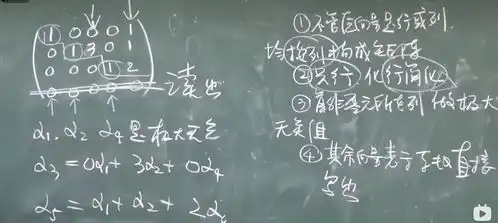 1 0 0 0 1
0 1 3 0 1
0 0 0 1 2
0 0 0 0 0
α₁, α₂ α₄ 是极大无关
α₃ = 0α₁ + 3α₂ + 0α₄
α₅ = α₁ + α₂ + 2α
① 不管向量是行或列
均按列构成矩阵
② 只行 化行简化
③ 首非零元所在列 做极大
无关组
④ 其余向量表示系数直接
写出